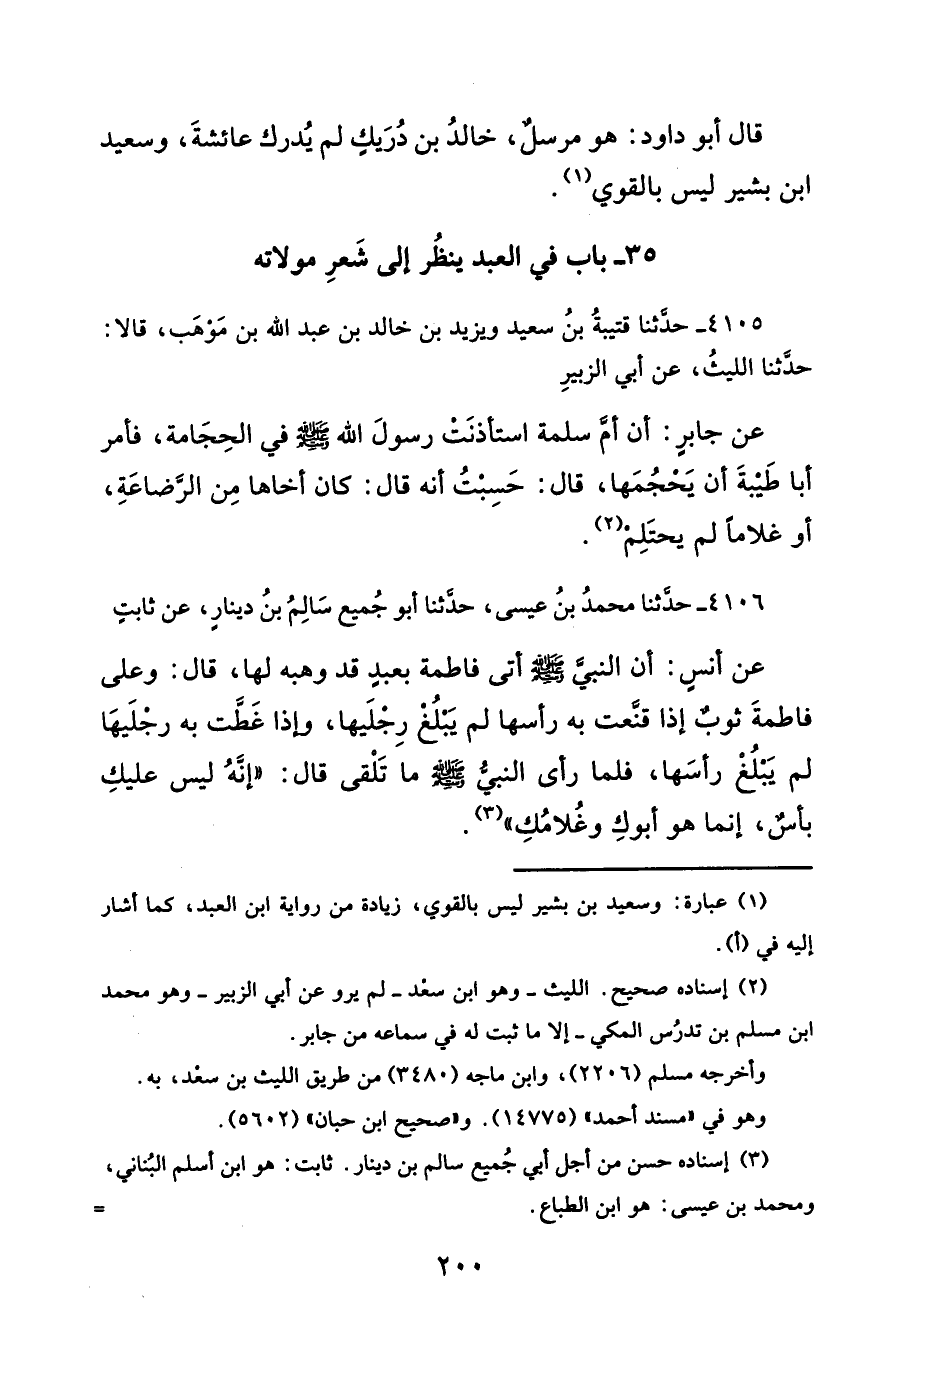 قال أبو داود: هو مرسلٌ، خالدُ بن دُرَيكٍ لم يُدرك عائشةَ، وسعيد
ابن بشير ليس بالقوي(١).
٣٥ـ باب في العبد ينظُر إلى شَعرِ مولاته
٤١٠٥ـ حدَّثنا قتيبةُ بنُ سعيد ويزيد بن خالد بن عبد الله بن مَوْهَب، قالا:
حدَّثنا الليثُ، عن أبي الزبيرِ
عن جابرٍ: أن أمَّ سلمة استأذنَتْ رسولَ الله ﷺ في الحِجَامة، فأمر
أبا طَيْبةَ أن يَحْجُمَها، قال: حَسِبْتُ أنه قال: كان أخاها مِن الرَّضاعَةِ،
أو غلاماً لم يحتَلِمْ(٢).
٤١٠٦ـ حدَّثنا محمدُ بنُ عيسى، حدَّثنا أبو جُميع سَالِمُ بنُ دينارٍ، عن ثابتٍ
عن أنسٍ: أن النبيَّ ﷺ أتى فاطمة بعبدٍ قد وهبه لها، قال: وعلى
فاطمةَ ثوبٌ إذا قنَّعت به رأسها لم يَبْلُغْ رِجْلَيها، وإذا غَطَّت به رجْلَيهَا
لم يَبْلُغْ رأسَها، فلما رأى النبيُّ ﷺ ما تَلْقى قال: «إنَّهُ ليس عليكِ
بأسٌ، إنما هو أبوكِ وغُلامُكِ»(٣).
(١) عبارة: وسعيد بن بشير ليس بالقوي، زيادة من رواية ابن العبد، كما أشار
إليه في (أ).
(٢) إسناده صحيح. الليث ـ وهو ابن سعْد ـ لم يرو عن أبي الزبير ـ وهو محمد
ابن مسلم بن تدرُس المكي ـ إلا ما ثبت له في سماعه من جابر.
وأخرجه مسلم (٢٢٠٦)، وابن ماجه (٣٤٨٠) من طريق الليث بن سعْد، به.
وهو في «مسند أحمد» (١٤٧٧٥). و«صحيح ابن حبان» (٥٦٠٢).
(٣) إسناده حسن من أجل أبي جُميع سالم بن دينار. ثابت: هو ابن أسلم البُناني،
ومحمد بن عيسى: هو ابن الطباع. =
٢٠٠